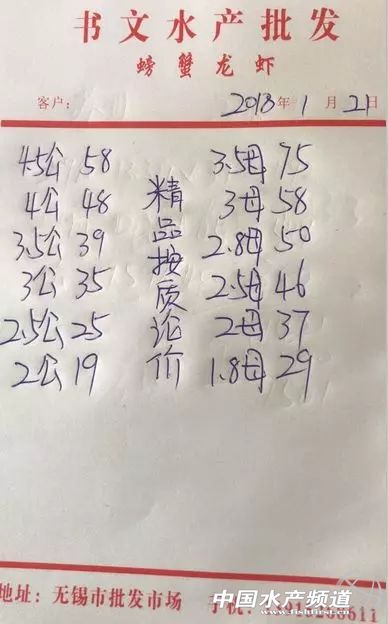 书文水产批发
螃蟹龙虾
客户： 2018年1月21日
4.5公 58
4公 48
3.5公 39
3公 35
2.5公 25
2公 19
精品按质论价
3.5母 75
3母 58
2.8母 50
2.5母 46
2母 37
1.8母 29
中国水产频道
www.fishfirst.cn
地址：无锡市批发市场 手机：